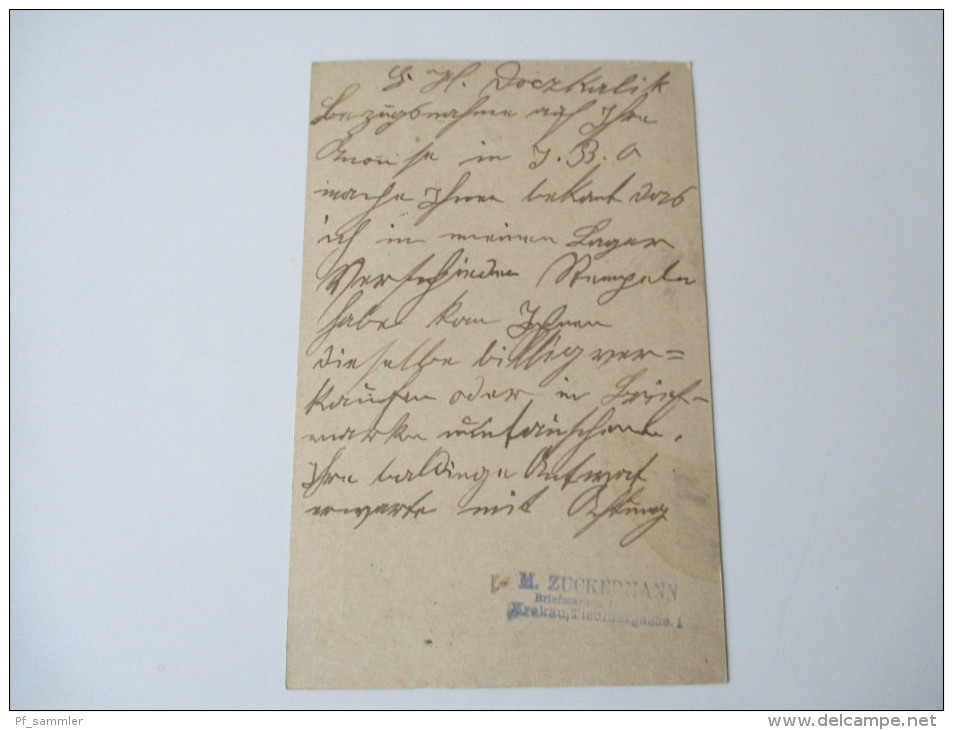 H. Doczkalik
Bezugsnahme auf Ihre
in I. B. O
mache Ihnen bekant das
ich in meinen Lager
Verschieden Stempeln
habe kan Ihnen
dieselbe billig ver=
kaufen oder in Brief-
marke umtauschen.
Ihre baldige Antwort
erwarte mit Achtung
M. ZUCKERMANN
Briefmarken
Krakau, Tischlergasse. 1
Pf_sammler
www.delcampe.net